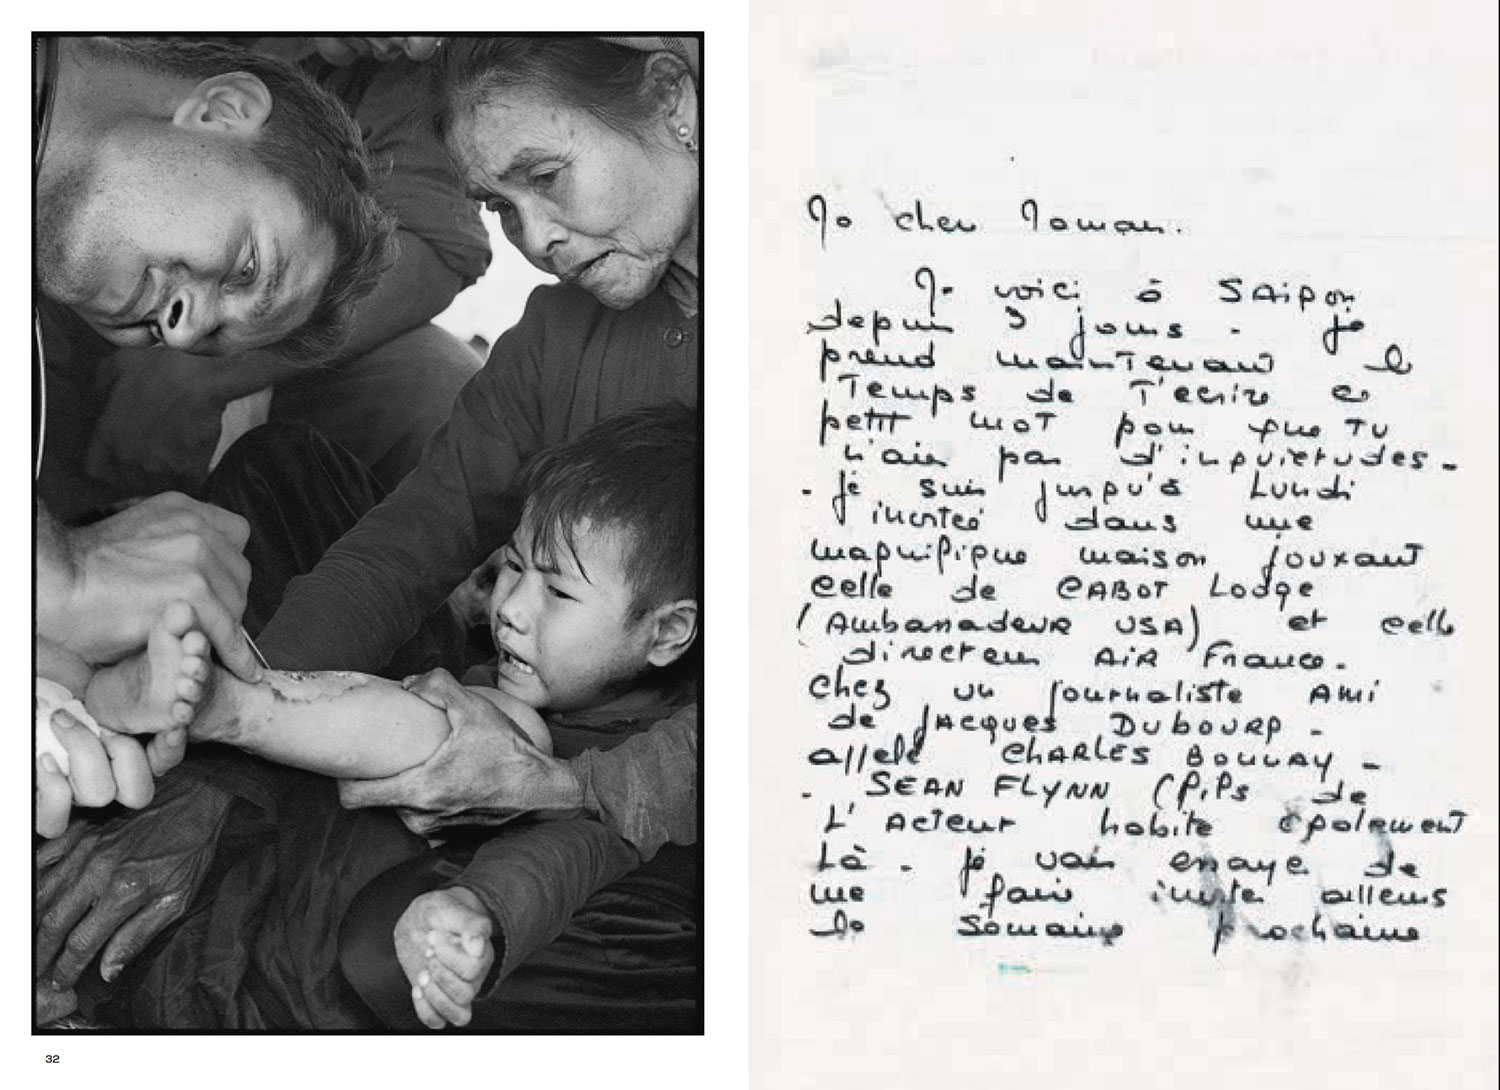 Ma chère Maman.
Me voici à SAigon
depuis 3 jours - je
prend mainTenant le
Temps de T'ecrire ce
petit moT pour que TU
n'ais pas d'inquietudes -
- je suis jusqu'à Lundi
invitée dans une
magnifique maison jouxanT
celle de CABOT Lodge
(AmbassadeuR USA) et celle
directeur AiR France.
Chez un journaliste AMi
de JAcques DUBOURG -
allelé CHARLES BOULAY -
- SEAN FLYNN (FiLs de
L'Acteur habite égalemenT
Là - je vais essaye de
me faire invite ailleurs
la Semaine prochaine
32